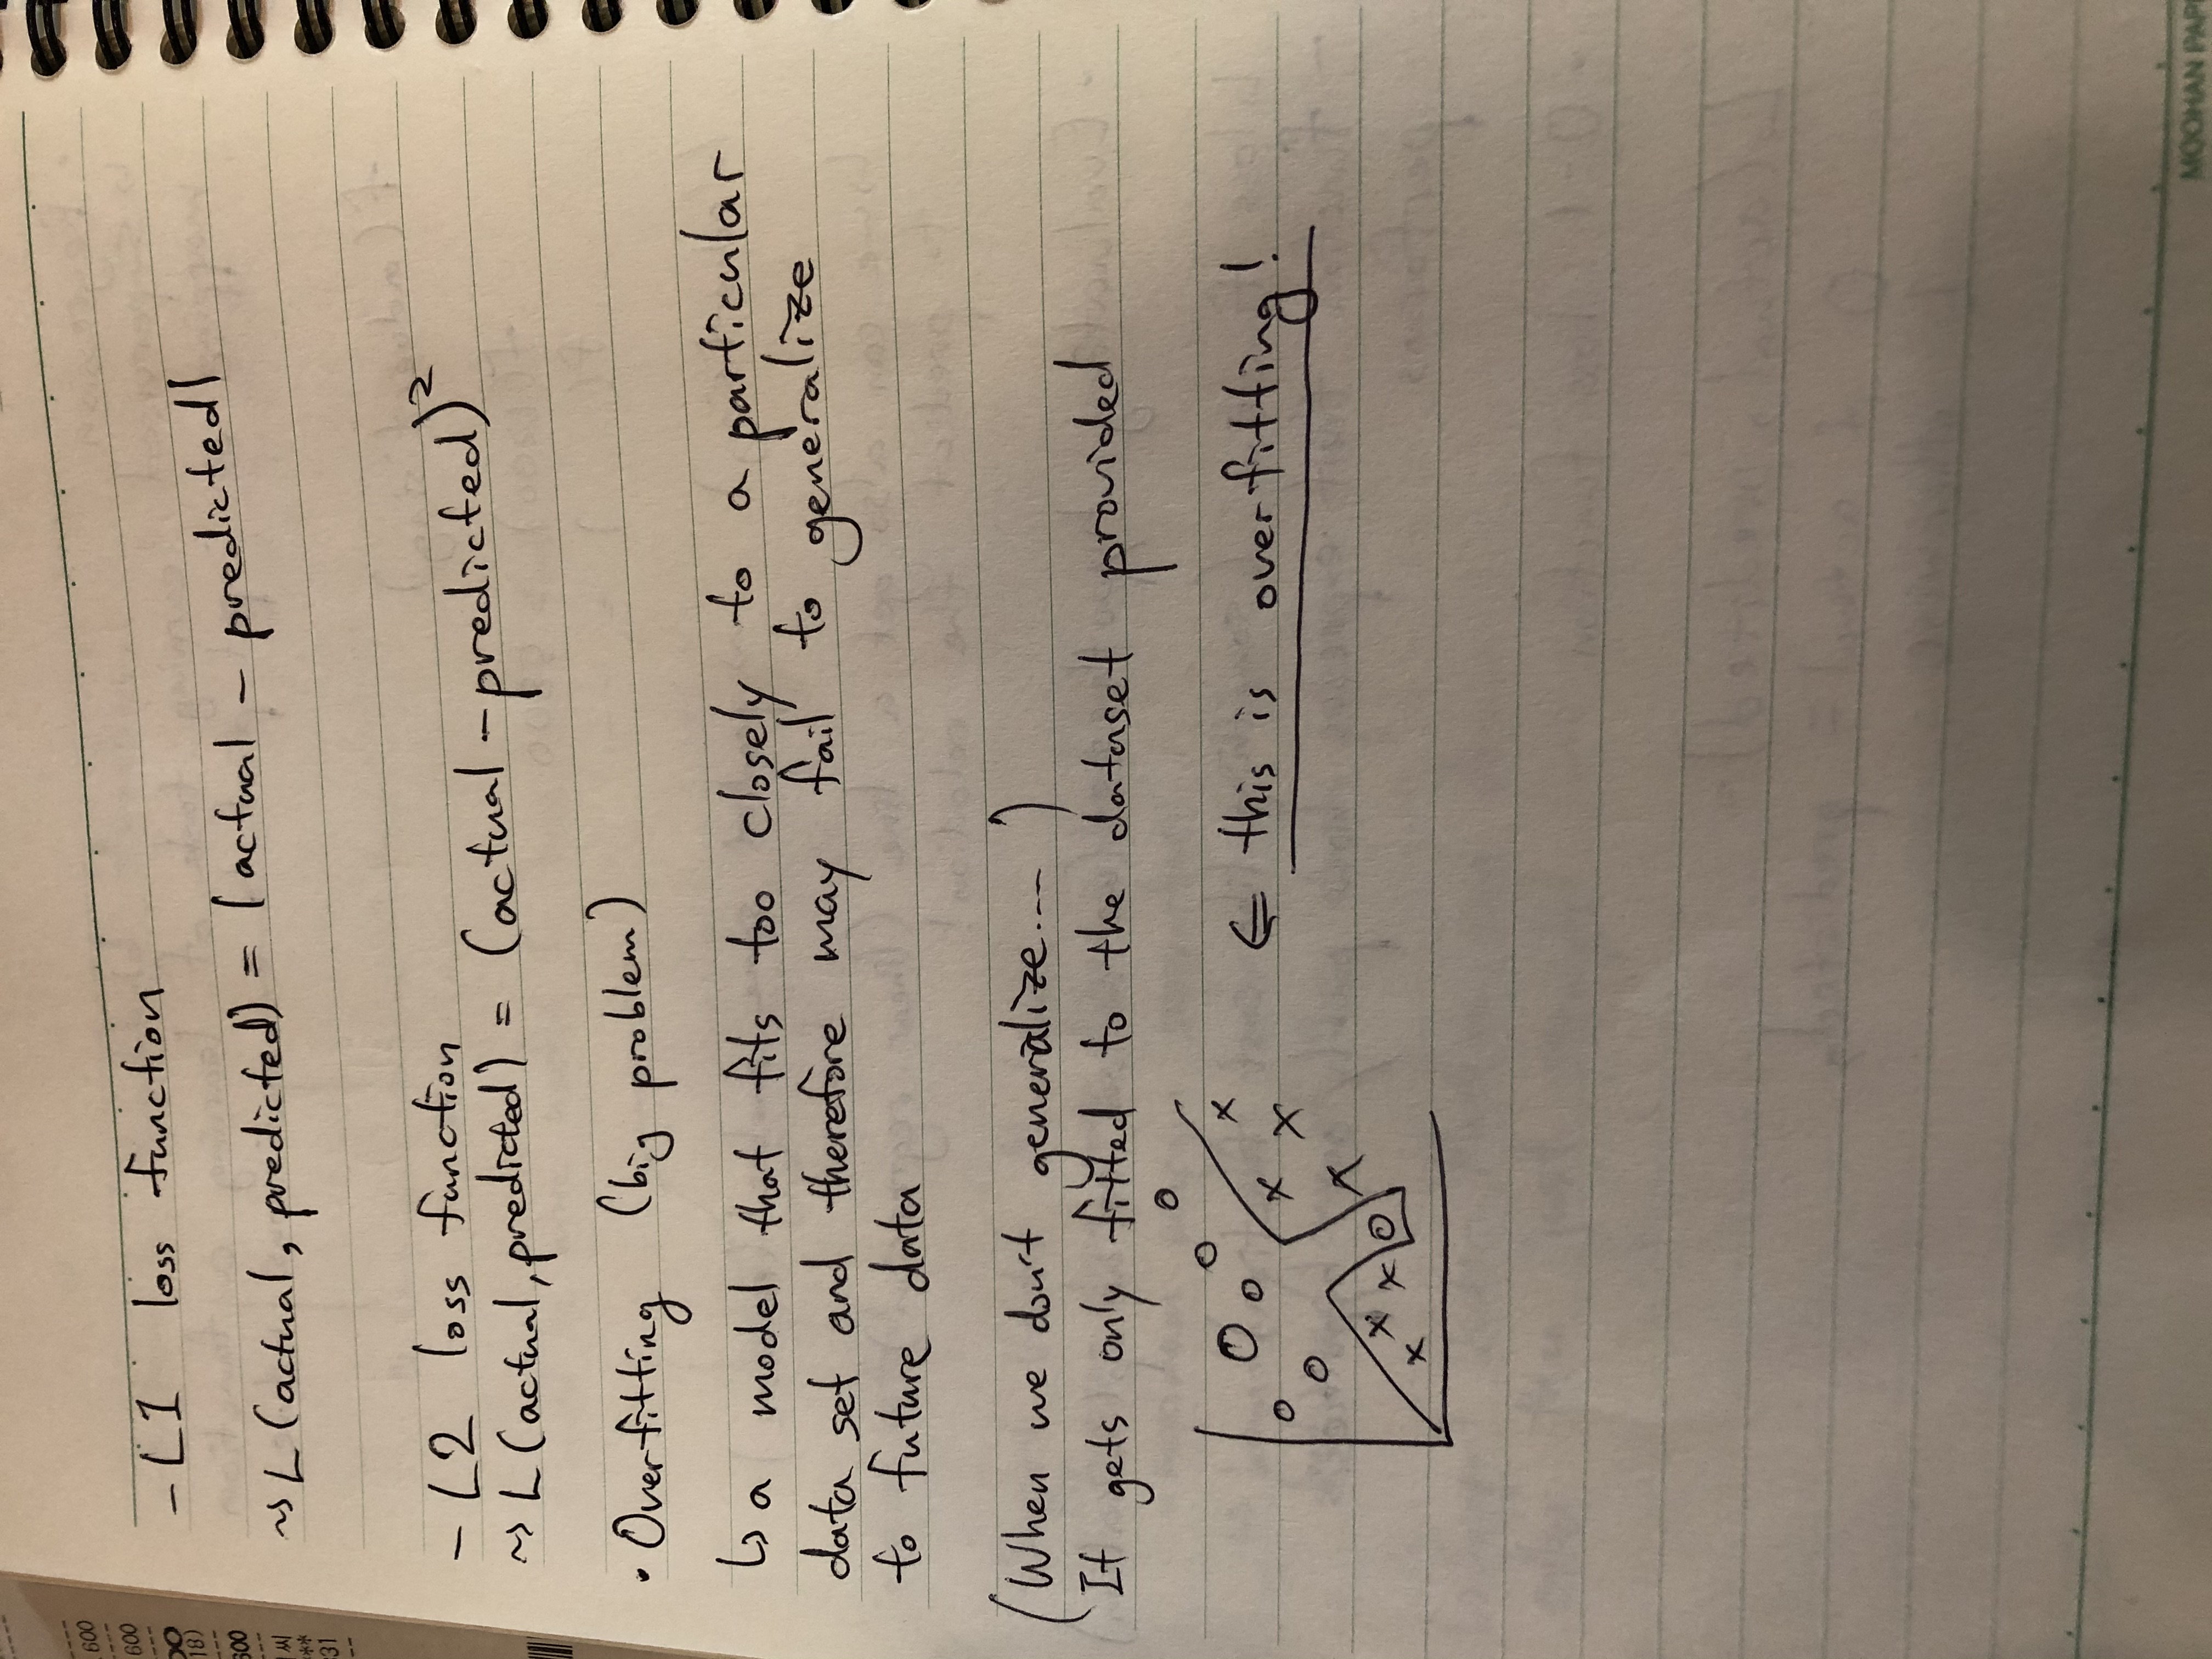 600
600
18)
600
331
- L1 loss function
~> L (actual, predicted) = |actual - predicted|
- L2 loss function
~> L (actual, predicted) = (actual - predicted)²
• Overfitting (big problem)
↳ a model that fits too closely to a particular
data set and therefore may fail to generalize
to future data
(When we don't generalize.... )
It gets only fitted to the dataset provided
⇐ this is overfitting!
MOOHAN PAP